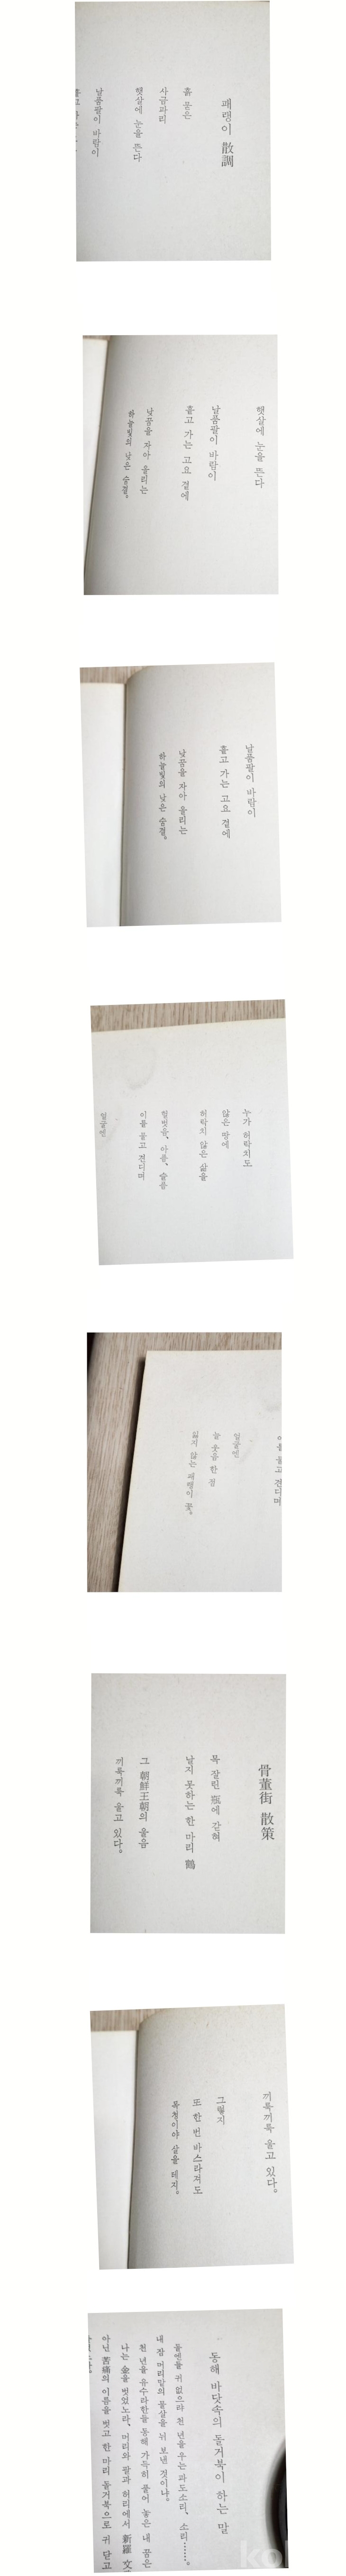 패랭이 散調
흙 묻은
사금파리
햇살에 눈을 뜬다
날품팔이 바람이
햇살에 눈을 뜬다
날품팔이 바람이
흩고 가는 고요 곁에
낮꿈을 자아 올리는
하늘빛의 낮은 숨결。
날품팔이 바람이
흩고 가는 고요 곁에
낮꿈을 자아 올리는
하늘빛의 낮은 숨결。
누가 허락치도
않은 땅에
허락치 않은 삶을
헐벗음、아픔、슬픔
이를 물고 견디며
얼굴엔
이를 물고 견디며
얼굴엔
늘 웃음 한 점
잃지 않는 패랭이꽃。
骨董街 散策
목 잘린 瓶에 갇혀
날지 못하는 한 마리 鶴
그 朝鮮王朝의 울음
끼룩끼룩 울고 있다。
끼룩끼룩 울고 있다。
그렇지
또 한 번 바스라져도
목청이야 살을 테지。
동해 바닷속의 돌거북이 하는 말
돌엔들 귀 없으랴 천 년을 우는 파도소리、소리……。
내 잠 머리맡의 물살을 뉘 보낸 것이냐。
천 년을 유수라 한들 동해 가득히 풀어 놓은 내 꿈은
나는 金을 벗었노라、머리와 팔과 허리에서 新羅 文
아닌 苦痛의 이름을 벗고 한 마리 돌거북으로 귀 닫고